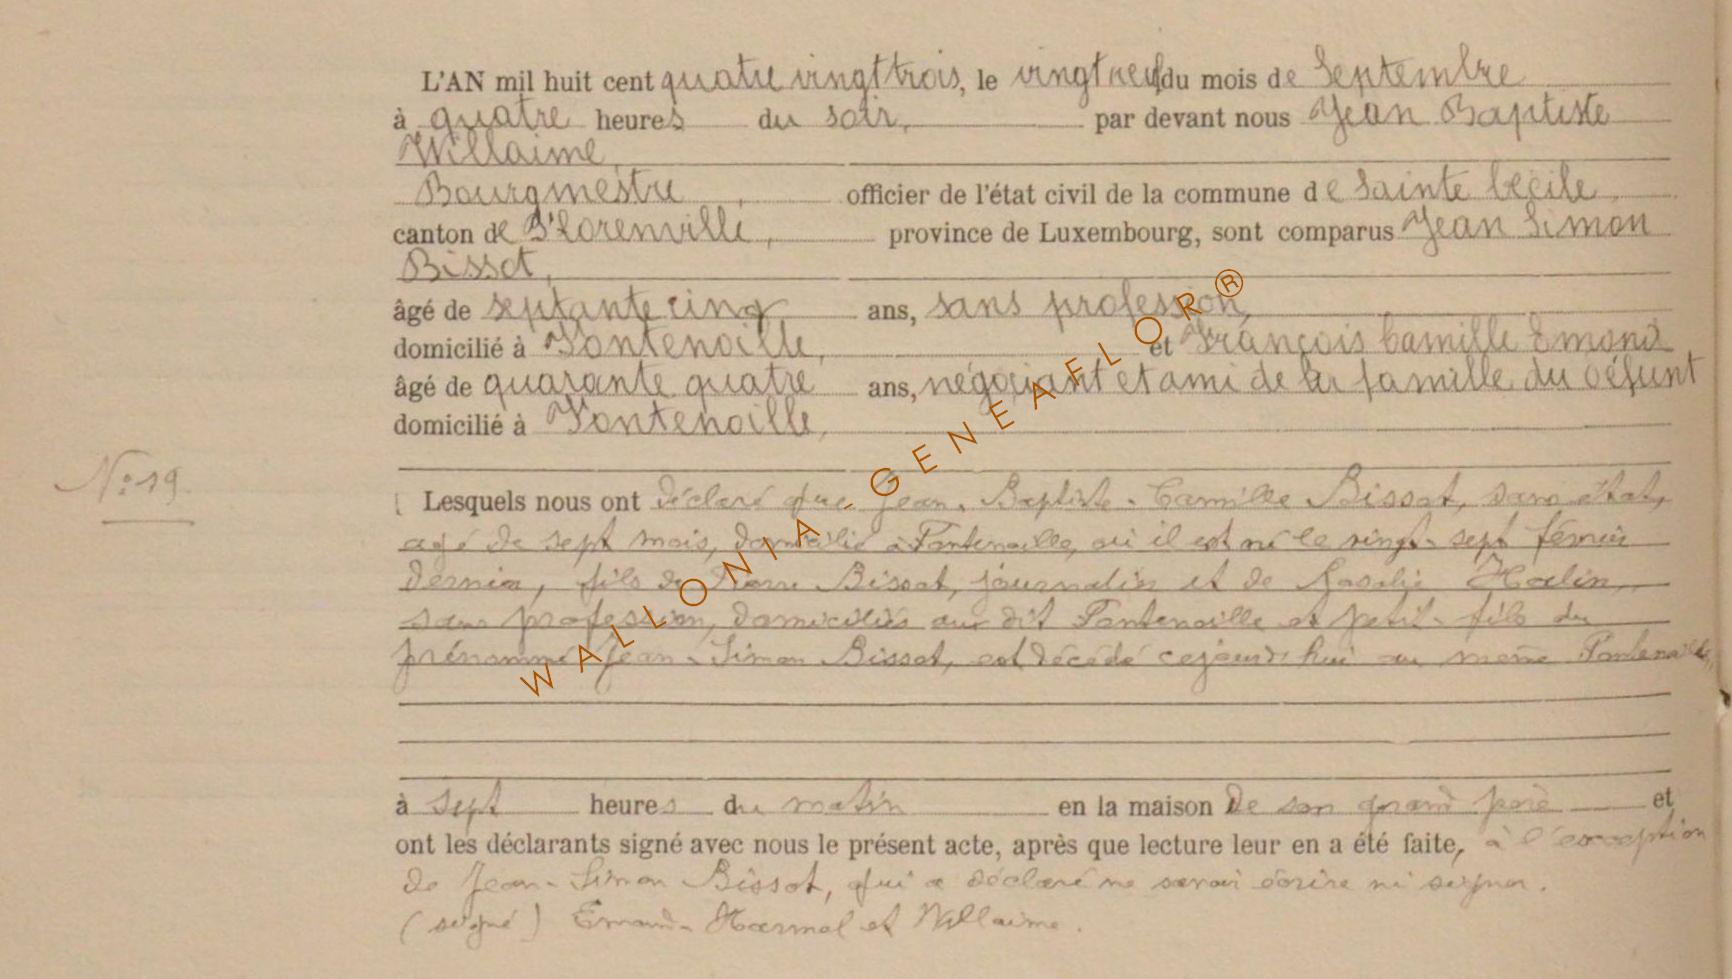 L'AN mil huit cent quatre vingt trois, le vingt neuf du mois de Septembre
à quatre heures du soir, par devant nous Jean Baptiste
Willaime,
Bourgmestre, officier de l'état civil de la commune de Sainte Cécile,
canton de Florenville, province de Luxembourg, sont comparus Jean Simon
Bissot,
âgé de septante cinq ans, sans profession,
domicilié à Fontenoille, et François Camille Emond
âgé de quarante quatre ans, négociant et ami de la famille du défunt
domicilié à Fontenoille,
N° 19.
Lesquels nous ont déclaré que Jean-Baptiste-Camille Bissot, sans état,
agé de sept mois, domicilié à Fontenoille, où il est né le vingt-sept février
dernier, fils de Pierre Bissot, journalier et de Rosalie Halin,
sans profession, domiciliés au dit Fontenoille et petit-fils du
prénommé Jean-Simon Bissot, est décédé cejourd'hui au même Fontenoille,
à sept heures du matin en la maison de son grand père et
ont les déclarants signé avec nous le présent acte, après que lecture leur en a été faite, à l'exception
de Jean-Simon Bissot, qui a déclaré ne savoir écrire ni signer.
(signé) Emond-Harmel et Willaime.
WALLONIA-GENEAFLOR®